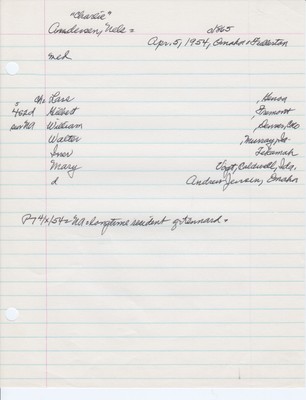 "Charlie"
Andersen, Nels = d/65
Apr. 5, 1954, Omaha + Fullerton
med
5 Ch: Lars , Heron
4s2d Hilbert , Fremont
William , Denver, Colo
Walter , Murray,
Iner Tekamah
Mary , Vogt, Caldwell, Ida.
d Andrew Jensen, Omaha
P74/X/54= Na = longtime resident of Kennard =